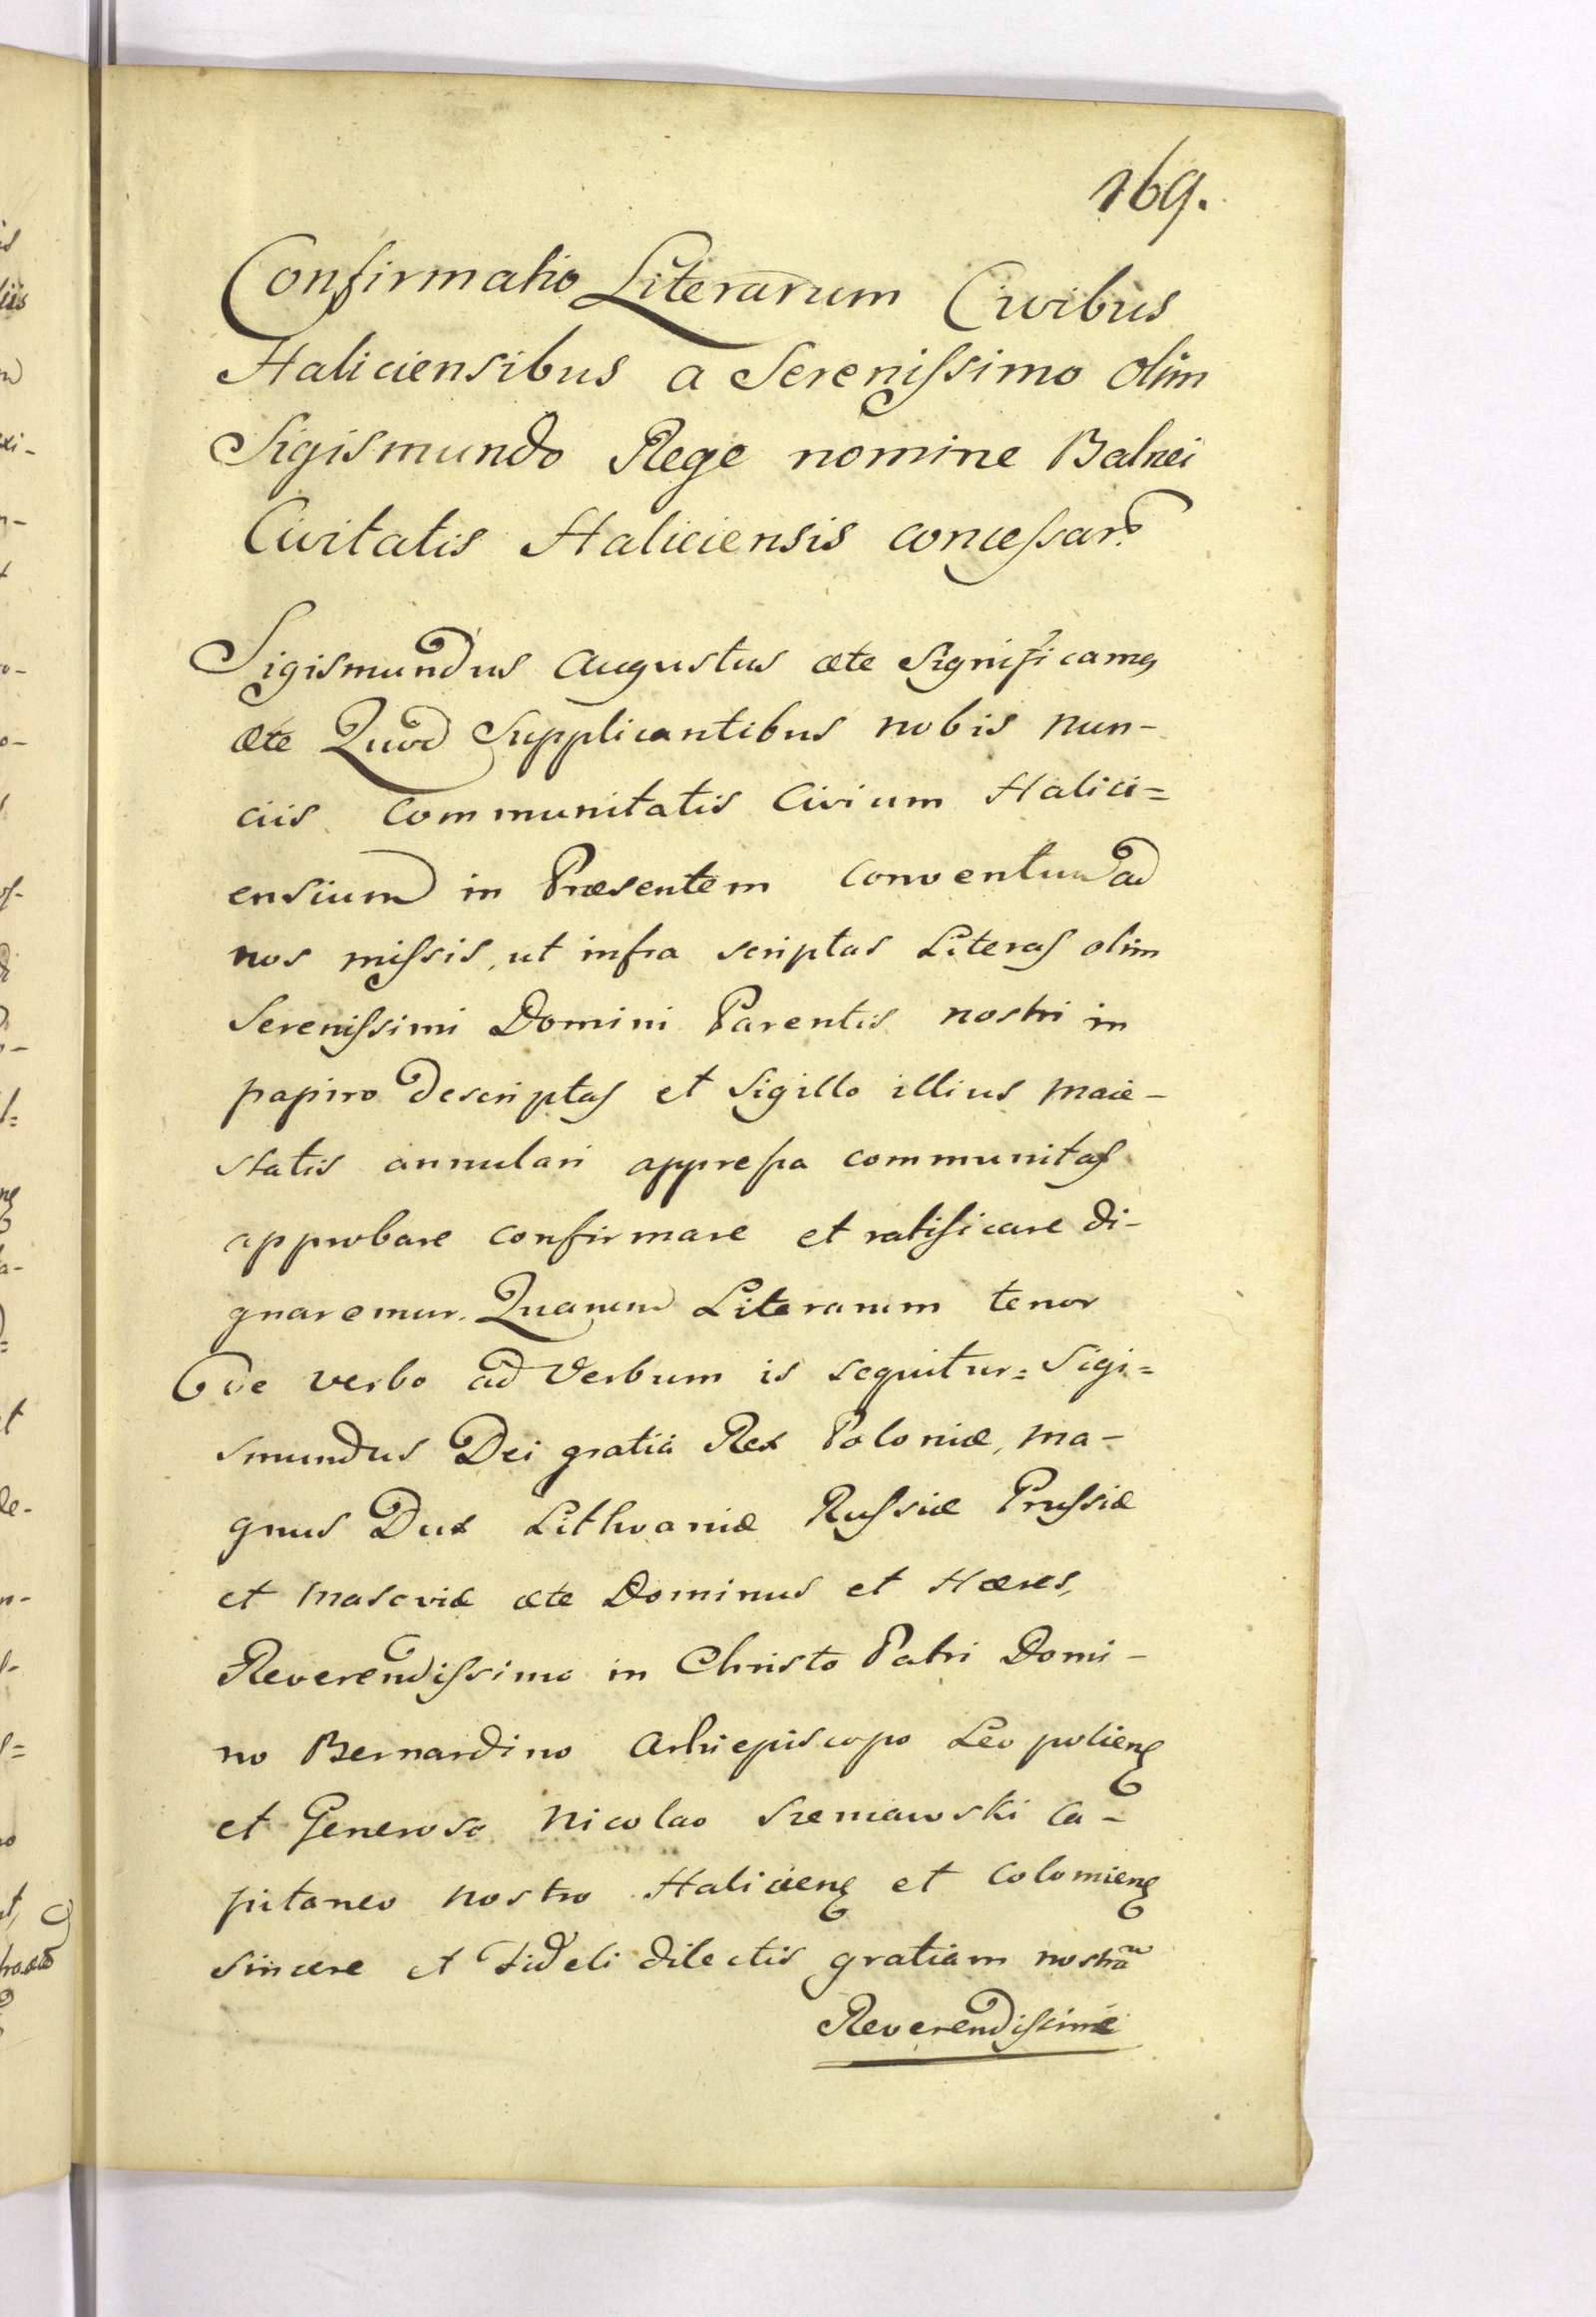 169.
Confirmatio Literarum Civibus
Haliciensibus a Serenissimo olim
Sigismundo Rege nomine Balnei
Civitatis Haliciensis concessar.
Sigismundus Augustus ete Significamq
ete Quod Supplicantibus nobis nun-
ciis Communitatis Civium Halici=
ensium in Præsentem Conventum ad
nos missis, ut infra scriptas Literas olim
Serenissimi Domini Parentis nostri in
papiro descriptas et Sigillo illius Maie-
statis annulari appressa communitas
approbare confirmare et ratificare di-
gnaremur. Quarum Literarum tenor
de verbo ad Verbum is sequitur= Sigi=
smundus Dei gratia Rex Poloniæ, Ma-
gnus Dux Lithvaniæ Russiæ Prussiæ
et Masoviæ ete Dominus et Hæres,
Reverendissimo in Christo Patri Domi-
no Bernardino Arhiepiscopo Leopolieng
et Generoso Nicolao Sieniawski Ca-
pitaneo nostro Halicieng et Colomieng
sincere et fideli dilectis gratiam nostra
Reverendissime